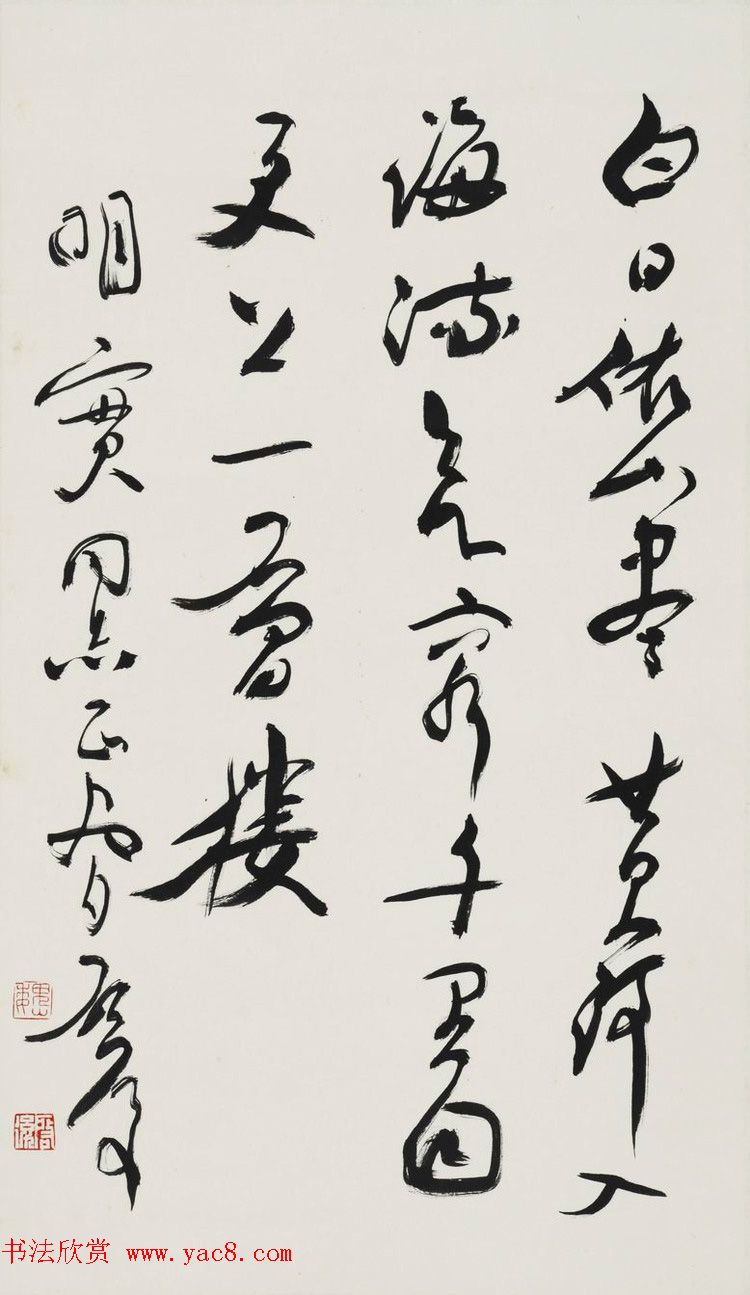 白日依山盡黄河入
海流欲窮千里目
更上一層樓
明實同志正
书法欣赏 www.yac8.com